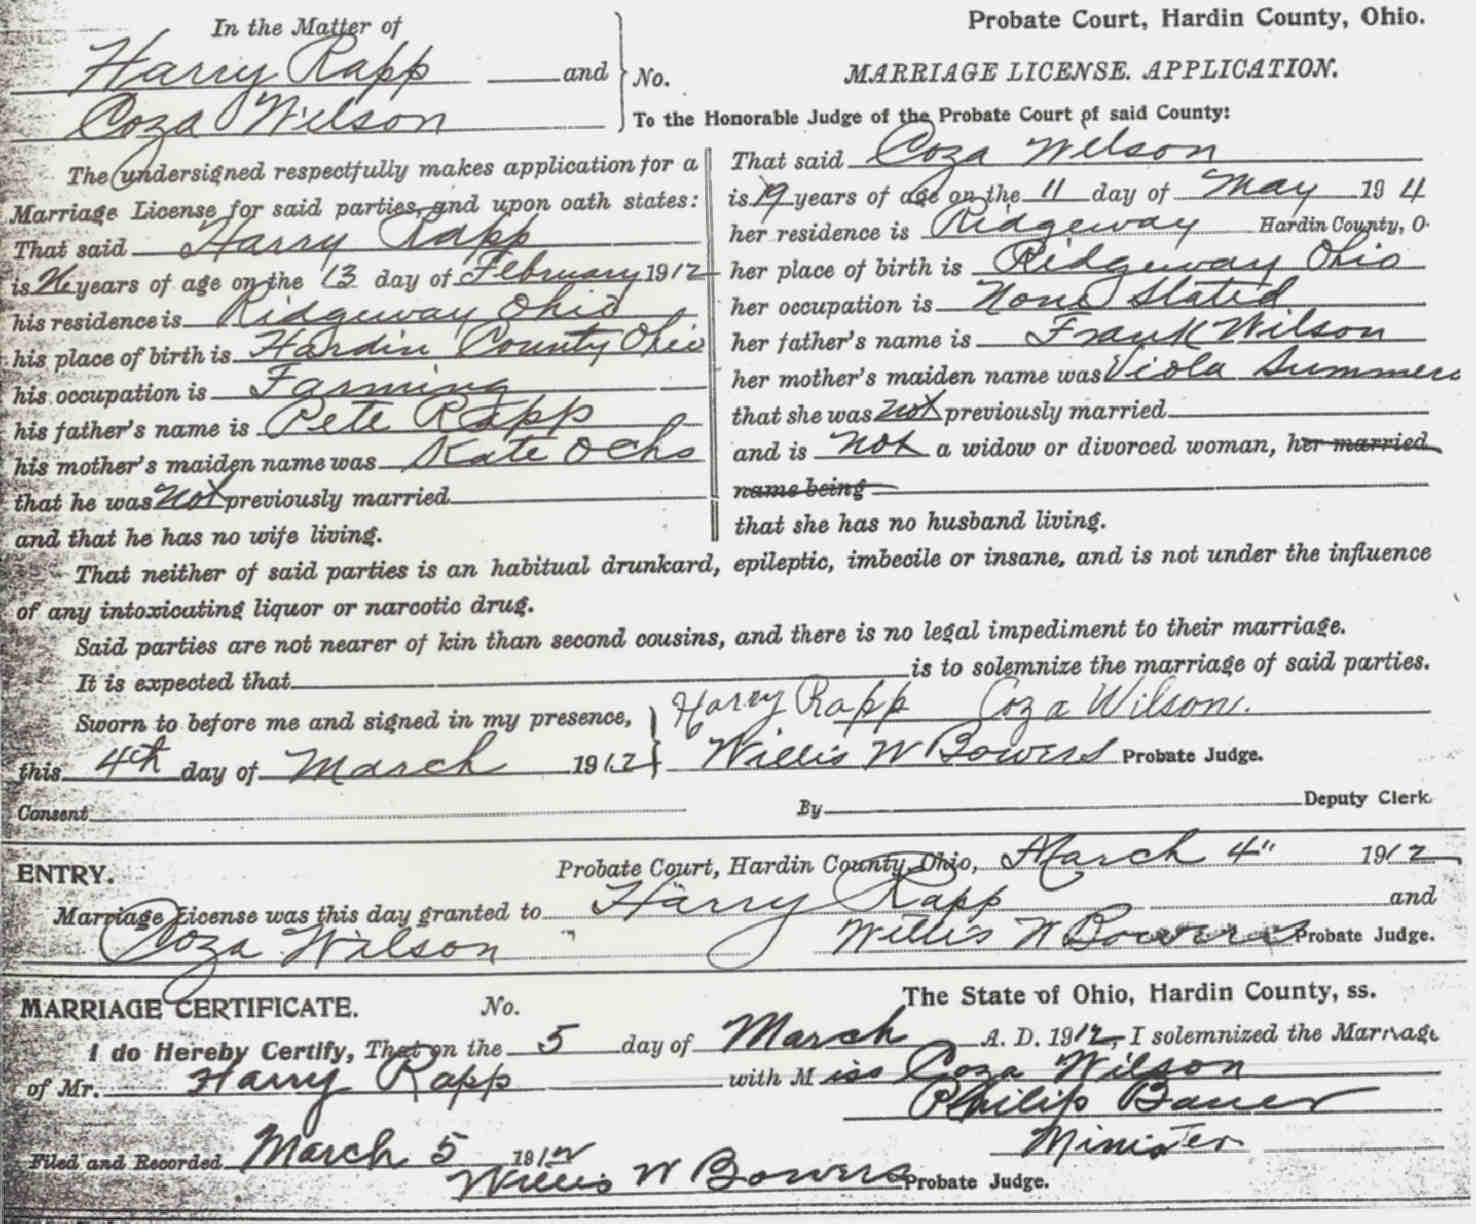 In the Matter of
Harry Rapp and
Coza Wilson
No.
Probate Court, Hardin County, Ohio.
MARRIAGE LICENSE. APPLICATION.
To the Honorable Judge of the Probate Court of said County:
The undersigned respectfully makes application for a
Marriage License for said parties, and upon oath states:
That said Harry Rapp
is years of age on the 13 day of February 1912
his residence is Ridgeway Ohio
his place of birth is Hardin County Ohio
his occupation is Farming
his father's name is Pete Rapp
his mother's maiden name was Kate Ochs
that he was not previously married
and that he has no wife living.
That said Coza Wilson
is 19 years of age on the 11 day of May 191
her residence is Ridgeway Hardin County, O.
her place of birth is Ridgeway Ohio
her occupation is None Stated
her father's name is Frank Wilson
her mother's maiden name was Viola Summers
that she was not previously married
and is not a widow or divorced woman, her married
name being
that she has no husband living.
That neither of said parties is an habitual drunkard, epileptic, imbecile or insane, and is not under the influence
of any intoxicating liquor or narcotic drug.
Said parties are not nearer of kin than second cousins, and there is no legal impediment to their marriage.
It is expected that is to solemnize the marriage of said parties.
Sworn to before me and signed in my presence,
this 4th day of March 1912
Harry Rapp Coza Wilson.
Willis W Bowers Probate Judge.
Consent By Deputy Clerk.
ENTRY. Probate Court, Hardin County, Ohio, March 4" 1912
Marriage License was this day granted to Harry Rapp and
Coza Wilson Willis W Bowers Probate Judge.
MARRIAGE CERTIFICATE. No. The State of Ohio, Hardin County, ss.
I do Hereby Certify, That on the 5 day of March A. D. 1912, I solemnized the Marriage
of Mr. Harry Rapp with Miss Coza Wilson
Philip Bauer
Minister
Filed and Recorded March 5 1912
Willis W Bowers Probate Judge.